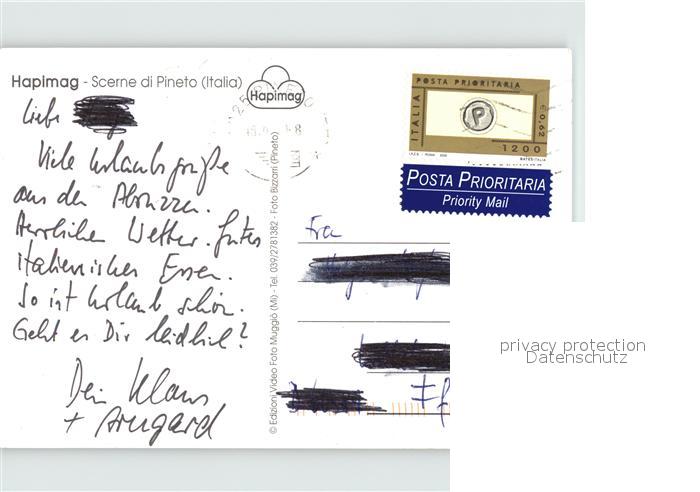 Hapimag - Scerne di Pineto (Italia)
Hapimag
Liebe
Viele Urlaubsgrüße
aus den Abruzzen.
Herrliches Wetter. Gutes
italienisches Essen.
So ist Urlaub schön.
Geht es Dir leidlich?
Dein Klaus
+ Irmgard
© Edizioni Video Foto Muggiò (Mi) - Tel. 039/2781382 - Foto Bizzarri (Pineto)
POSTA PRIORITARIA
ITALIA
P
€ 0,62
1200
POSTA PRIORITARIA
Priority Mail
Frau
privacy protection
Datenschutz